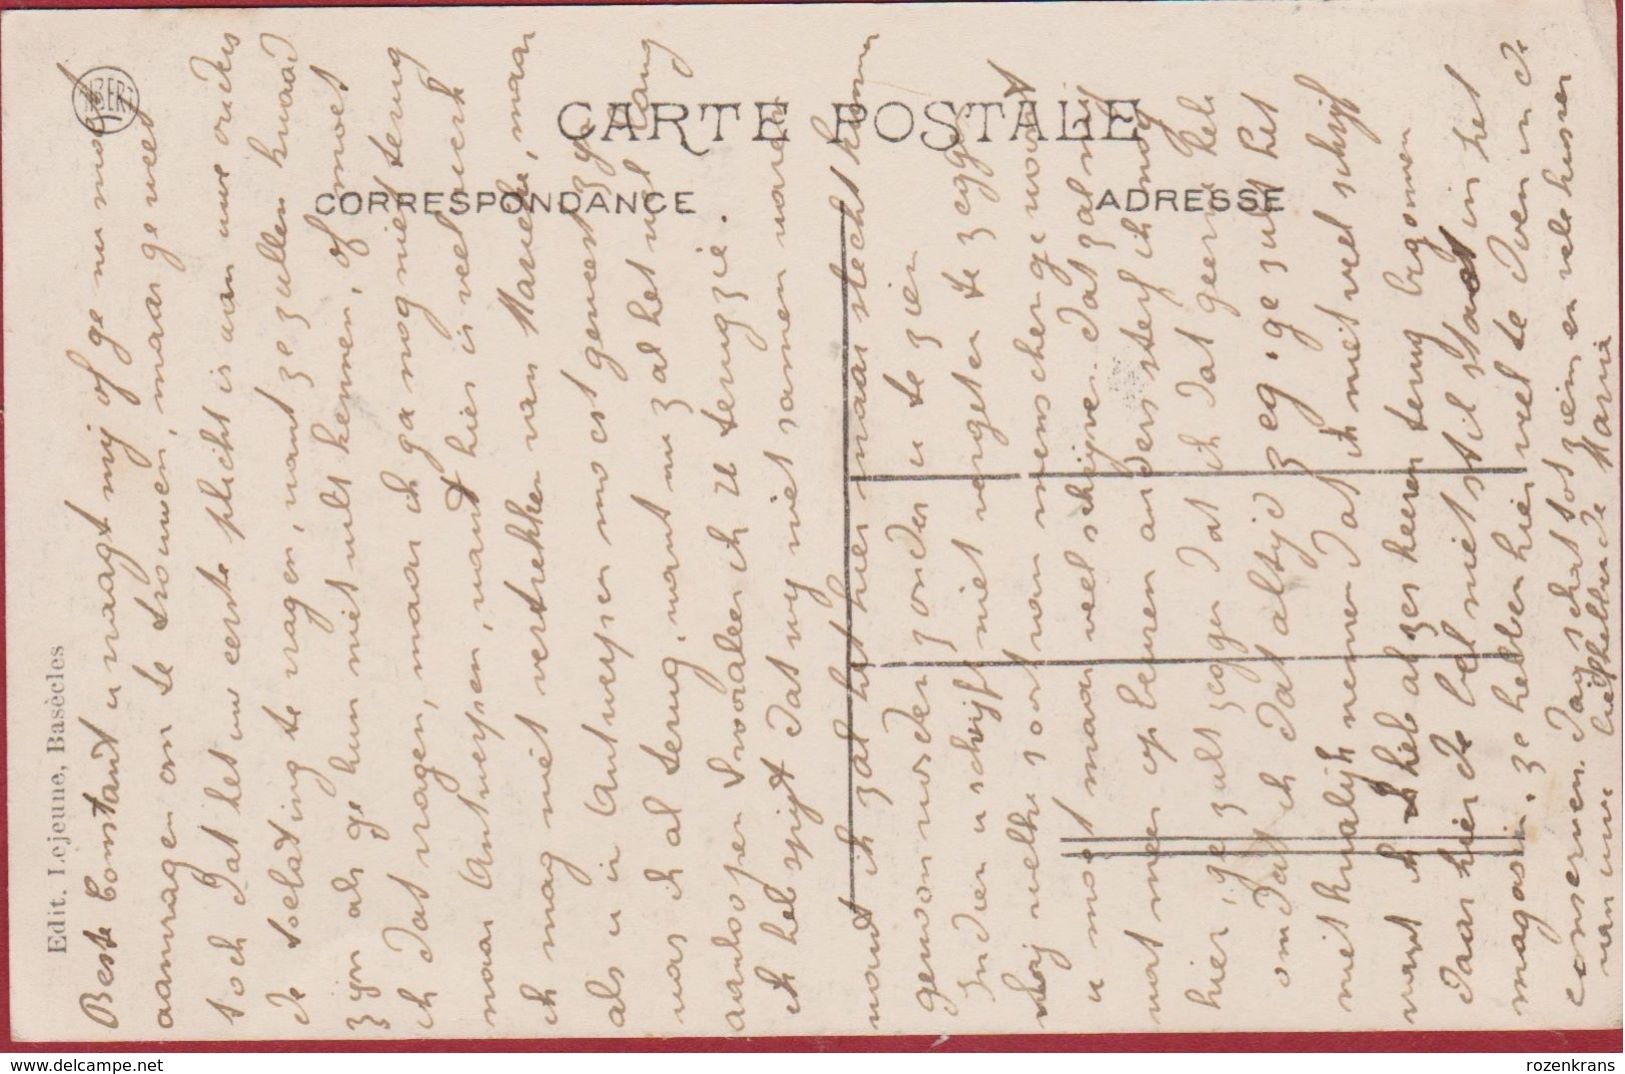 CARTE POSTALE
CORRESPONDANCE
ADRESSE
Edit. Lejeune, Basècles
Beste Constant u vraagt mij of ge nu moogt
aanvragen om te trouwen, maar ge weet
toch dat het uw eerste plicht is aan uwe ouders
de toelating te vragen, want ze zullen kwaad
zijn als ge hun niet wilt kennen, of moet
ik dat vragen, maar ik ga nog niet terug
naar Antwerpen, want hier is veel werk
ik mag niet vertrekken van Marieke, maar
als u in Antwerpen moest geweest zijn
was ik al terug, want nu zal het wel lang
aanloopen vooraleer ik u terugzie.
ik heb spijt dat wij niet samen waren
want ik zal het hier maar slecht
gewoon worden zonder u te zien
Indien u schrijft niet vergeten te zeggen
bij welke soort van menschen ge woont
u moet maar veel schrijven. dat zal mij
wat meer opbeuren anders sterf ik nog
hier, ge zult zeggen dat ik dat geern heb
omdat ik dat altijd zeg, ge zult het
niet kwalijk nemen dat ik niet veel schrijf
want ik heb al zes keeren terug begonnen
daar hier de bel niet stil staat in het
magasin. ze hebben hier veel te doen in de
conserven. dag schat tot ziens en vele kussen
van uwe liefhebbende Maria
rozenkrans